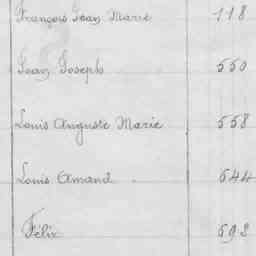 François Jean Marie 118
Jean Joseph 550
Louis Auguste Marie 558
Louis Amand 644
Félix 692